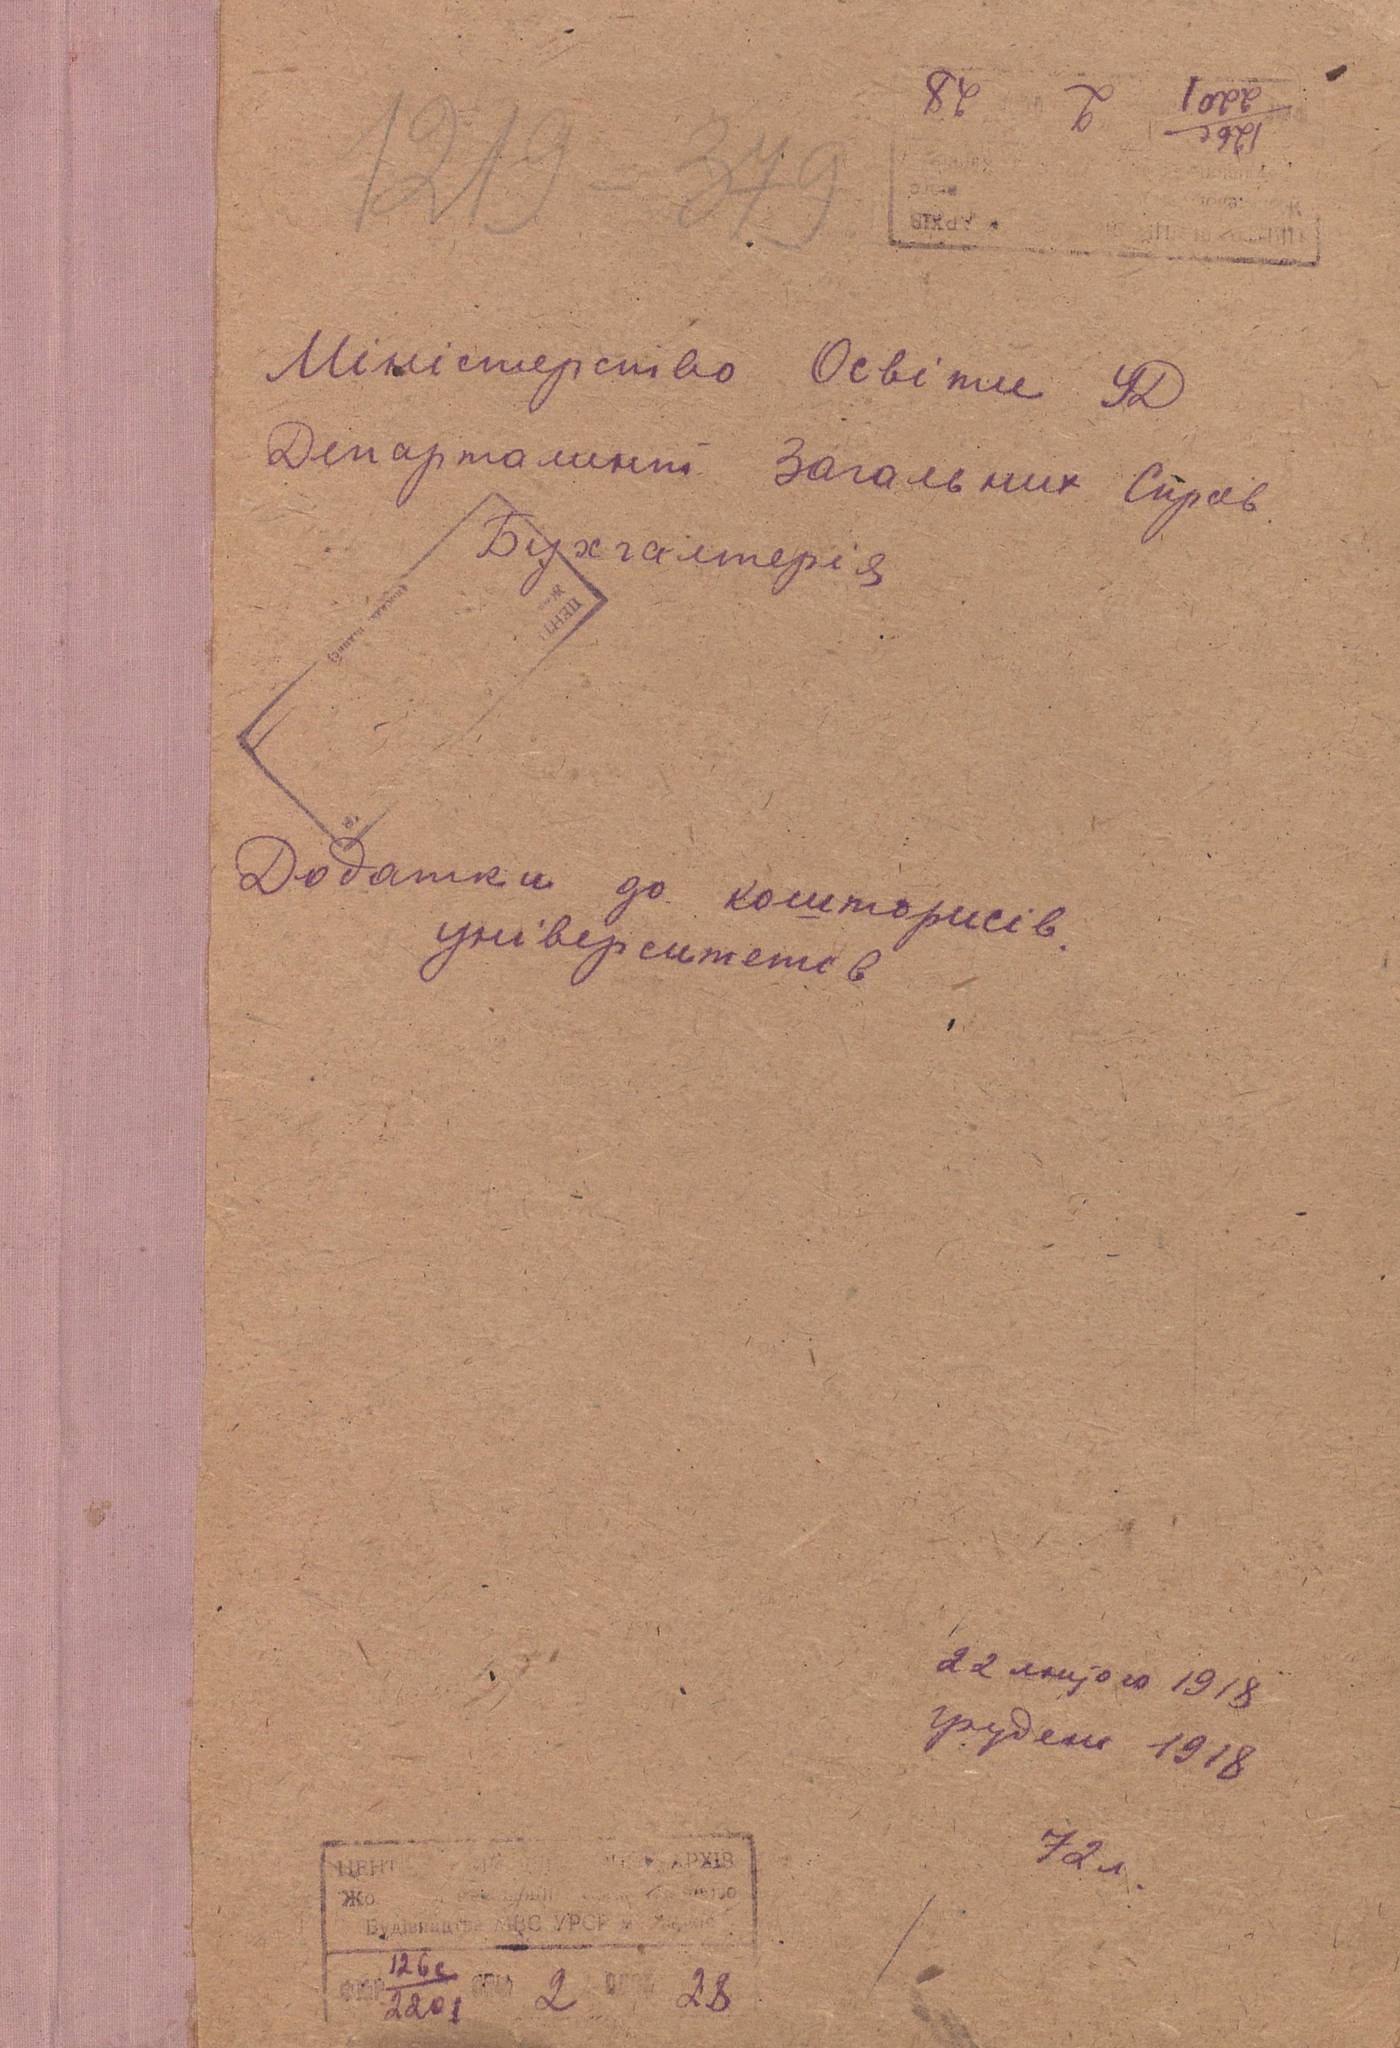 126с
2201
2
28
1219 - 379
Міністерство Освіти УД
Департамент Загальних Справ
Бухгалтерія
ЦЕНТ
Додатки до кошторисів
університетів
22 лютого 1918
грудень 1918
72 л.
ЦЕНТ АРХІВ
Жо
Будівництва МВС УРСР м. Харків
126с
2201
2
28